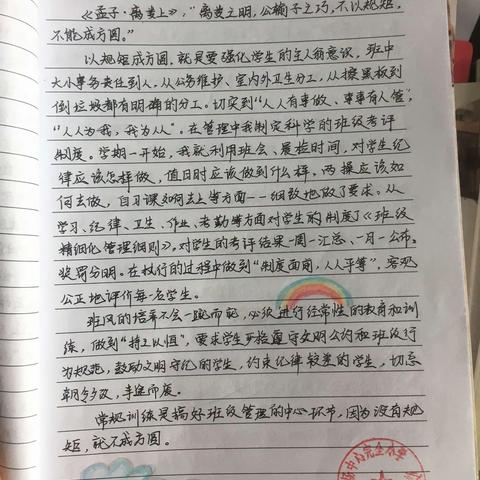 《孟子·离娄上》："离娄之明，公输子之巧，不以规矩，
不能成方圆。"
以规矩成方圆，就是要强化学生的主人翁意识，班中
大小事务责任到人，从公务维护、室内外卫生分工，从擦黑板到
倒垃圾都有明确的分工。切实到"人人有事做、事事有人管"，
"人人为我，我为人人"。在管理中我制定科学的班级考评
制度。学期一开始，我就利用班会、晨检时间，对学生纪
律应该怎样做，值日时应该做到什么样，两操应该如
何去做，自习课如何去上等方面一一细致地做了要求。从
学习、纪律、卫生、作业、考勤等方面对学生的制度了《班级
精细化管理细则》，对学生的考评结果一周一汇总、一月一公布，
奖罚分明。在执行的过程中做到"制度面前，人人平等"，客观
公正地评价每一名学生。
班风的培养不会一蹴而就，必须进行经常性的教育和训
练，做到"持之以恒"，要求学生严格遵守文明公约和班级行
为规范，鼓励文明守纪的学生，约束纪律较差的学生，切忌
朝令夕改，半途而废。
常规训练是搞好班级管理的中心环节，因为没有规
矩，就不成方圆。
完全小学